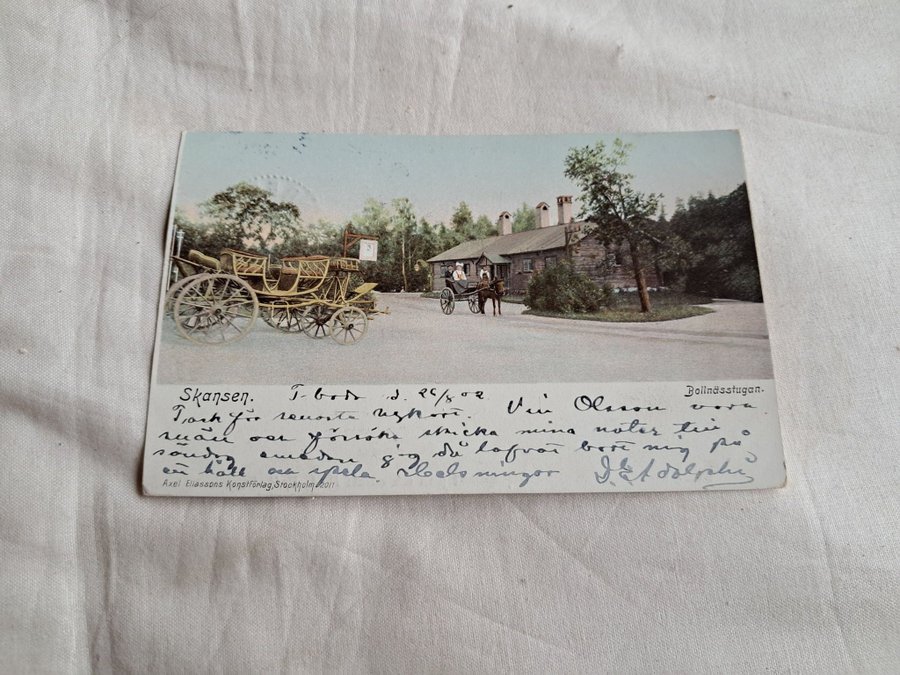 3
Skansen. T-bodr d. 26/8 02 Bollnässtugan.
Tack för senaste vykort. Vill Olsson vara
snäll och försöka skicka mina noter till
söndag emedan jag du lofvat
en och spela. Helsningar D. E. Adolphi
Axel Eliassons Konstförlag, Stockholm. 2011